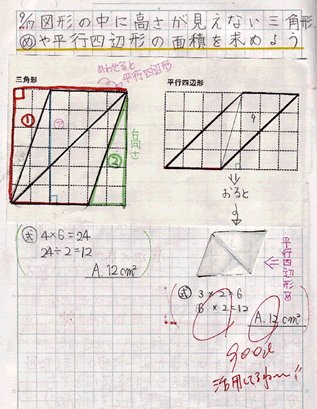 9/17 図形の中に高さが見えない三角形
め や平行四辺形の面積を求めよう
あわせると
平行四辺形
三角形
平行四辺形
①
②
高さ
4
おると
平行四辺形
式 4×6=24
24÷2=12
A. 12cm²
式 3×2=6
6×2=12
A. 12cm²
good
活用してるねー!!